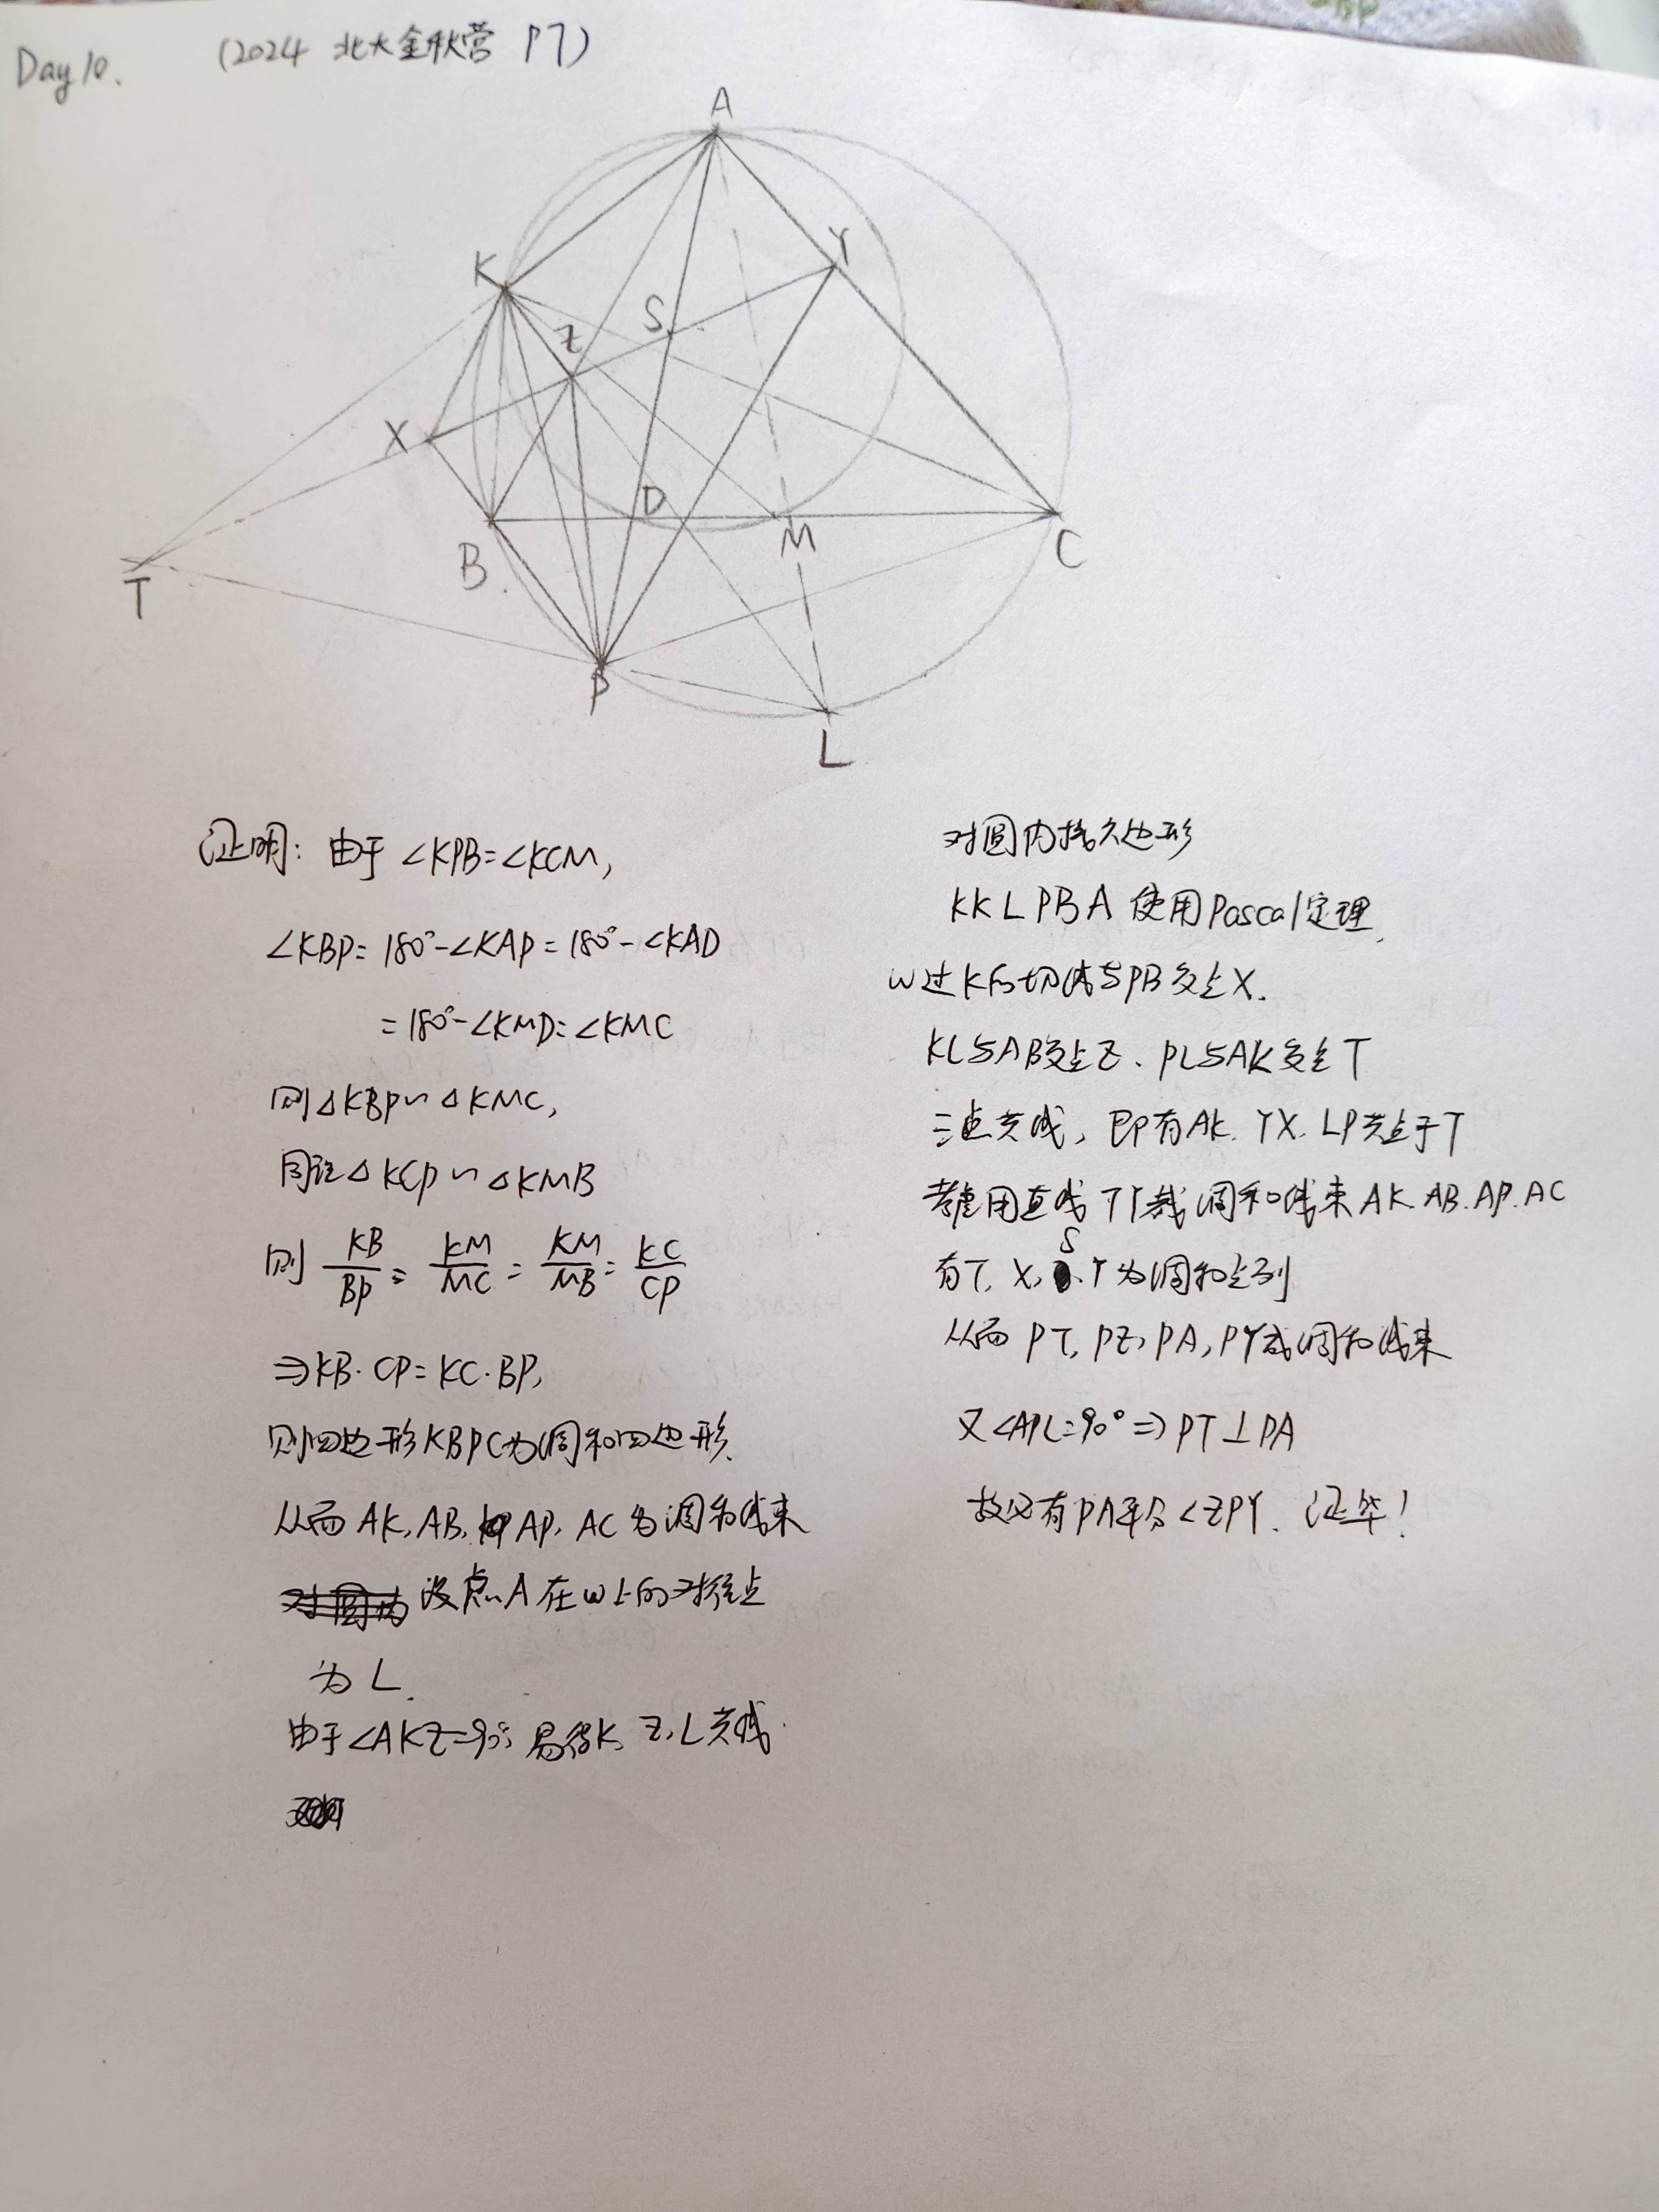 Day 10.
(2024 北大金秋营 P7)
A
K
Y
Z
S
X
T
B
D
M
C
P
L
证明: 由于 ∠KPB=∠KCM,
∠KBP= 180°-∠KAP= 180°-∠KAD
= 180°-∠KMD= ∠KMC
则 △KBP∽△KMC,
同理△KCP∽△KMB
则 KB/BP = KM/MC = KM/MB = KC/CP
⇒KB·CP=KC·BP,
则四边形KBPC为调和四边形.
从而 AK, AB, AP, AC 为调和线束
设点A在ω上的对径点
为 L.
由于∠AKZ=90°, 易得K, Z, L共线.
对圆内接六边形
KKLPBA 使用Pascal定理,
ω过K的切线与PB交点X.
KL与AB交点Z、PL与AK交点T
三点共线, 即有AK. YX. LP共点于T
考虑用直线TY截调和线束AK.AB.AP.AC
有T, X, S, Y为调和点列
从而 PT, PZ, PA, PY成调和线束
又∠APL=90°⇒PT⊥PA
故必有PA平分∠ZPY. 证毕!